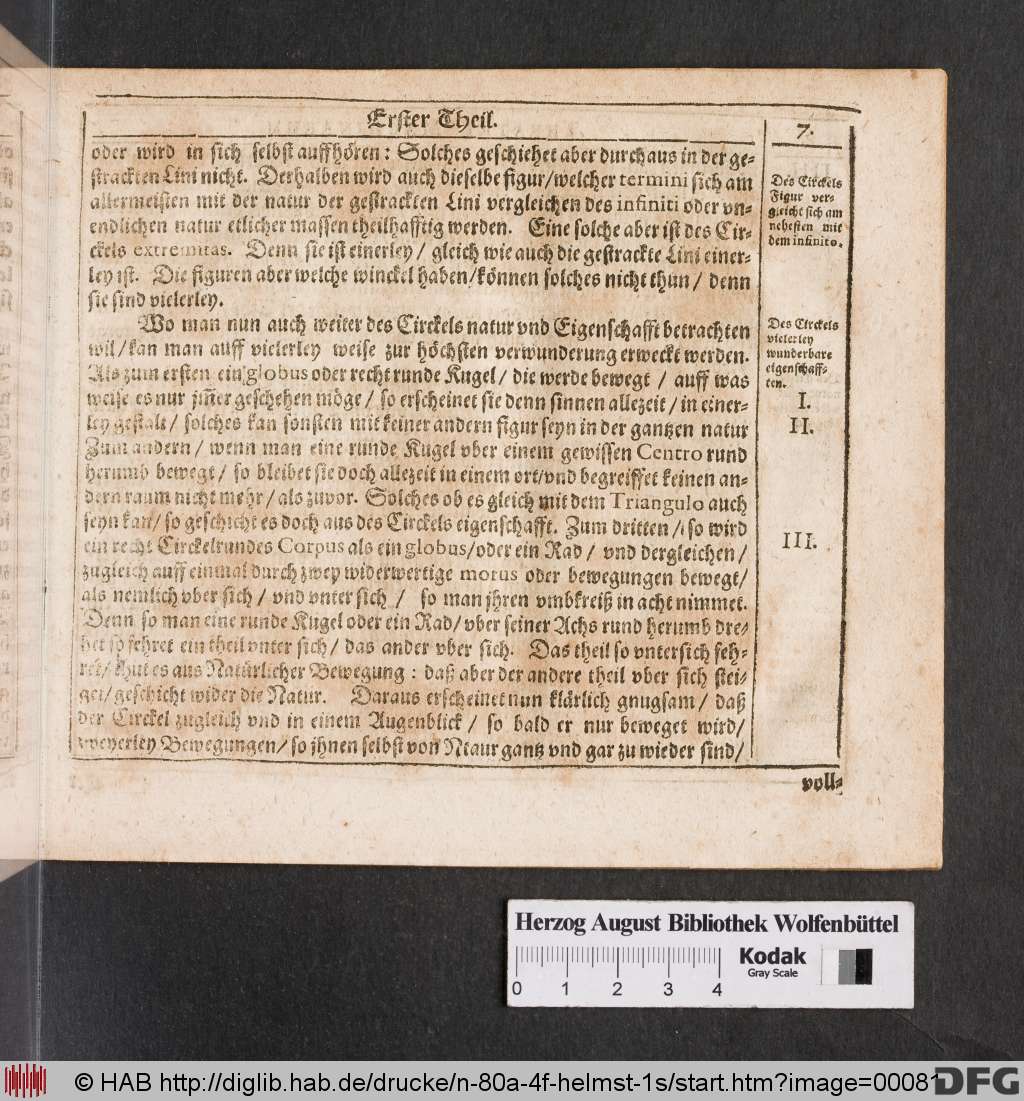 Erster Theil.
7.
oder wird in sich selbst auffhören: Solches geschiehet aber durchaus in der ge-
strackten Lini nicht. Derhalben wird auch dieselbe figur/welcher termini sich am
allermeisten mit der natur der gestrackten Lini vergleichen des infiniti oder vn-
endlichen natur etlicher massen theilhafftig werden. Eine solche aber ist des Cir-
ckels extremitas. Denn sie ist einerley/ gleich wie auch die gestrackte Lini einer-
ley ist. Die figuren aber welche winckel haben/können solches nicht thun/ denn
sie sind vielerley.
Wo man nun auch weiter des Circkels natur vnd Eigenschafft betrachten
wil/kan man auff vielerley weise zur höchsten verwunderung erweckt werden.
Als zum ersten ein globus oder recht runde Kugel/ die werde bewegt/ auff was
weise es nur jm̃er geschehen möge/ so erscheinet sie denn sinnen allezeit/ in einer-
ley gestalt/ solches kan sonsten mit keiner andern figur seyn in der gantzen natur
Zum andern/ wenn man eine runde Kugel vber einem gewissen Centro rund
herumb bewegt/ so bleibet sie doch allezeit in einem ort/vnd begreiffet keinen an-
dern raum nicht mehr/ als zuvor. Solches ob es gleich mit dem Triangulo auch
seyn kan/ so geschicht es doch aus des Circkels eigenschafft. Zum dritten/ so wird
ein recht Circkelrundes Corpus als ein globus/oder ein Rad/ vnd dergleichen/
zugleich auff einmal durch zwey widerwertige motus oder bewegungen bewegt/
als nemlich vber sich/ vnd vnter sich/ so man jhren vmbkreiß in acht nimmet.
Denn so man eine runde Kugel oder ein Rad/ vber seiner Achs rund herumb dre-
het so fehret ein theil vnter sich/ das ander vber sich. Das theil so vntersich feh-
ret/ thut es aus Natürlicher Bewegung: daß aber der andere theil vber sich stei-
get/geschicht wider die Natur. Daraus erscheinet nun klärlich gnugsam/ daß
der Circkel zugleich vnd in einem Augenblick/ so bald er nur beweget wird/
zweyerley Bewegungen/ so jhnen selbst von Ntaur gantz vnd gar zu wieder sind/
voll-
Des Circkels
Figur ver-
gleicht sich am
nehesten mit
dem infinito.
Des Circkels
vielerley
wunderbare
eigenschaff-
ten.
I.
II.
III.
Herzog August Bibliothek Wolfenbüttel
0 1 2 3 4
Kodak
Gray Scale
© HAB http://diglib.hab.de/drucke/n-80a-4f-helmst-1s/start.htm?image=00081
DFG